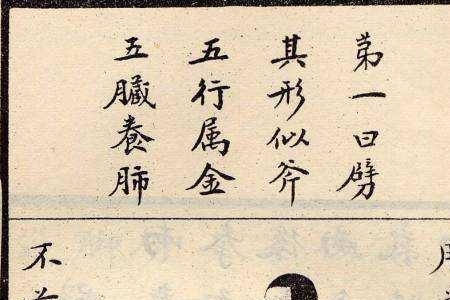 第一曰劈
其形似斧
五行属金
五臟養肺
不